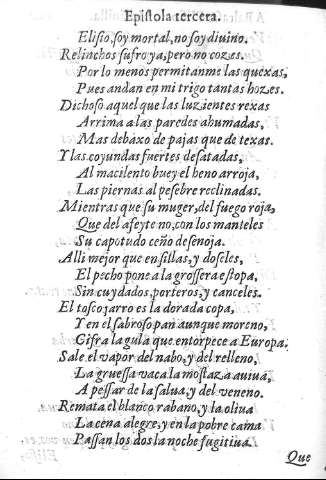 Epistola tercera.
Elisio, soy mortal, no soy diuino.
Relinchos sufro ya, pero no cozes.
Por lo menos permitanme las quexas,
Pues andan en mi trigo tantas hozes.
Dichoso aquel que las luzientes rexas
Arrima a las paredes ahumadas,
Mas debaxo de pajas que de texas.
Y las coyundas fuertes desatadas,
Al macilento buey el heno arroja,
Las piernas al pesebre reclinadas.
Mientras que su muger, del fuego roja,
Que del afeyte no, con los manteles
Su capotudo ceño desenoja.
Alli mejor que en sillas, y doseles,
El pecho pone a la grossera estopa,
Sin cuydados, porteros, y canceles.
El tosco jarro es la dorada copa,
Y en el sabroso pan aunque moreno,
Cifra la gula que entorpece a Europa:
Sale el vapor del nabo, y del relleno,
La gruessa vaca la mostaza auiua,
A pessar de la salua, y del veneno.
Remata el blanco rabano, y la oliua
La cena alegre, y en la pobre cama
Passan los dos la noche fugitiua.
Que